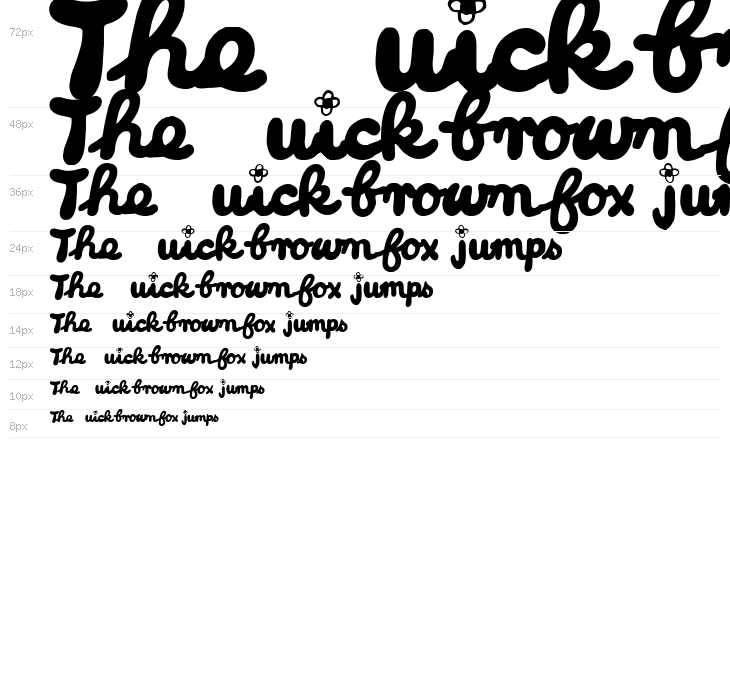 72px The uick br
48px The uick brown f
36px The uick brown fox jum
24px The uick brown fox jumps
18px The uick brown fox jumps
14px The uick brown fox jumps
12px The uick brown fox jumps
10px The uick brown fox jumps
8px The uick brown fox jumps